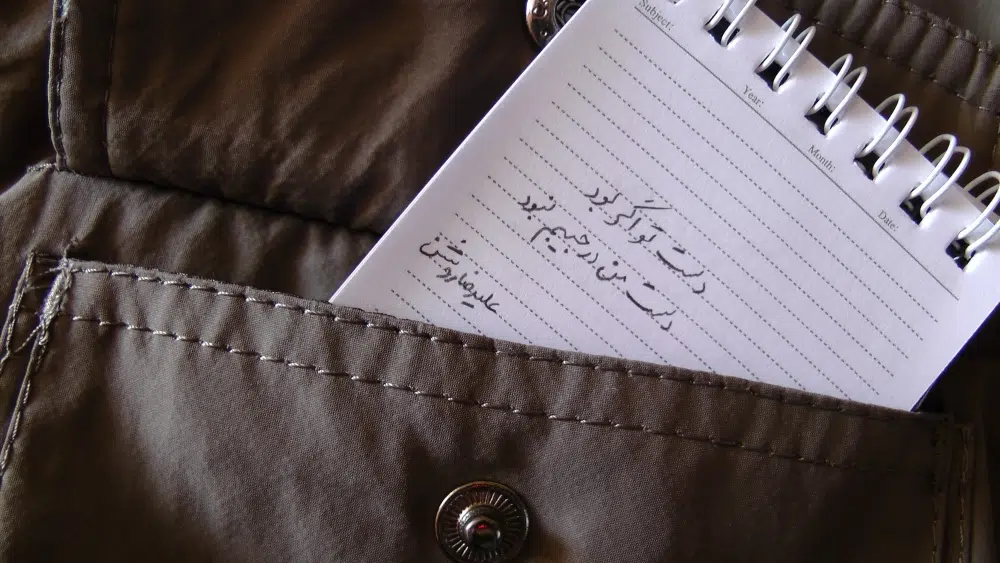 Subject:
Year:
Month:
Date:
دست تو اگر بود
دست من در جیبم نبود
علیرضا روشن